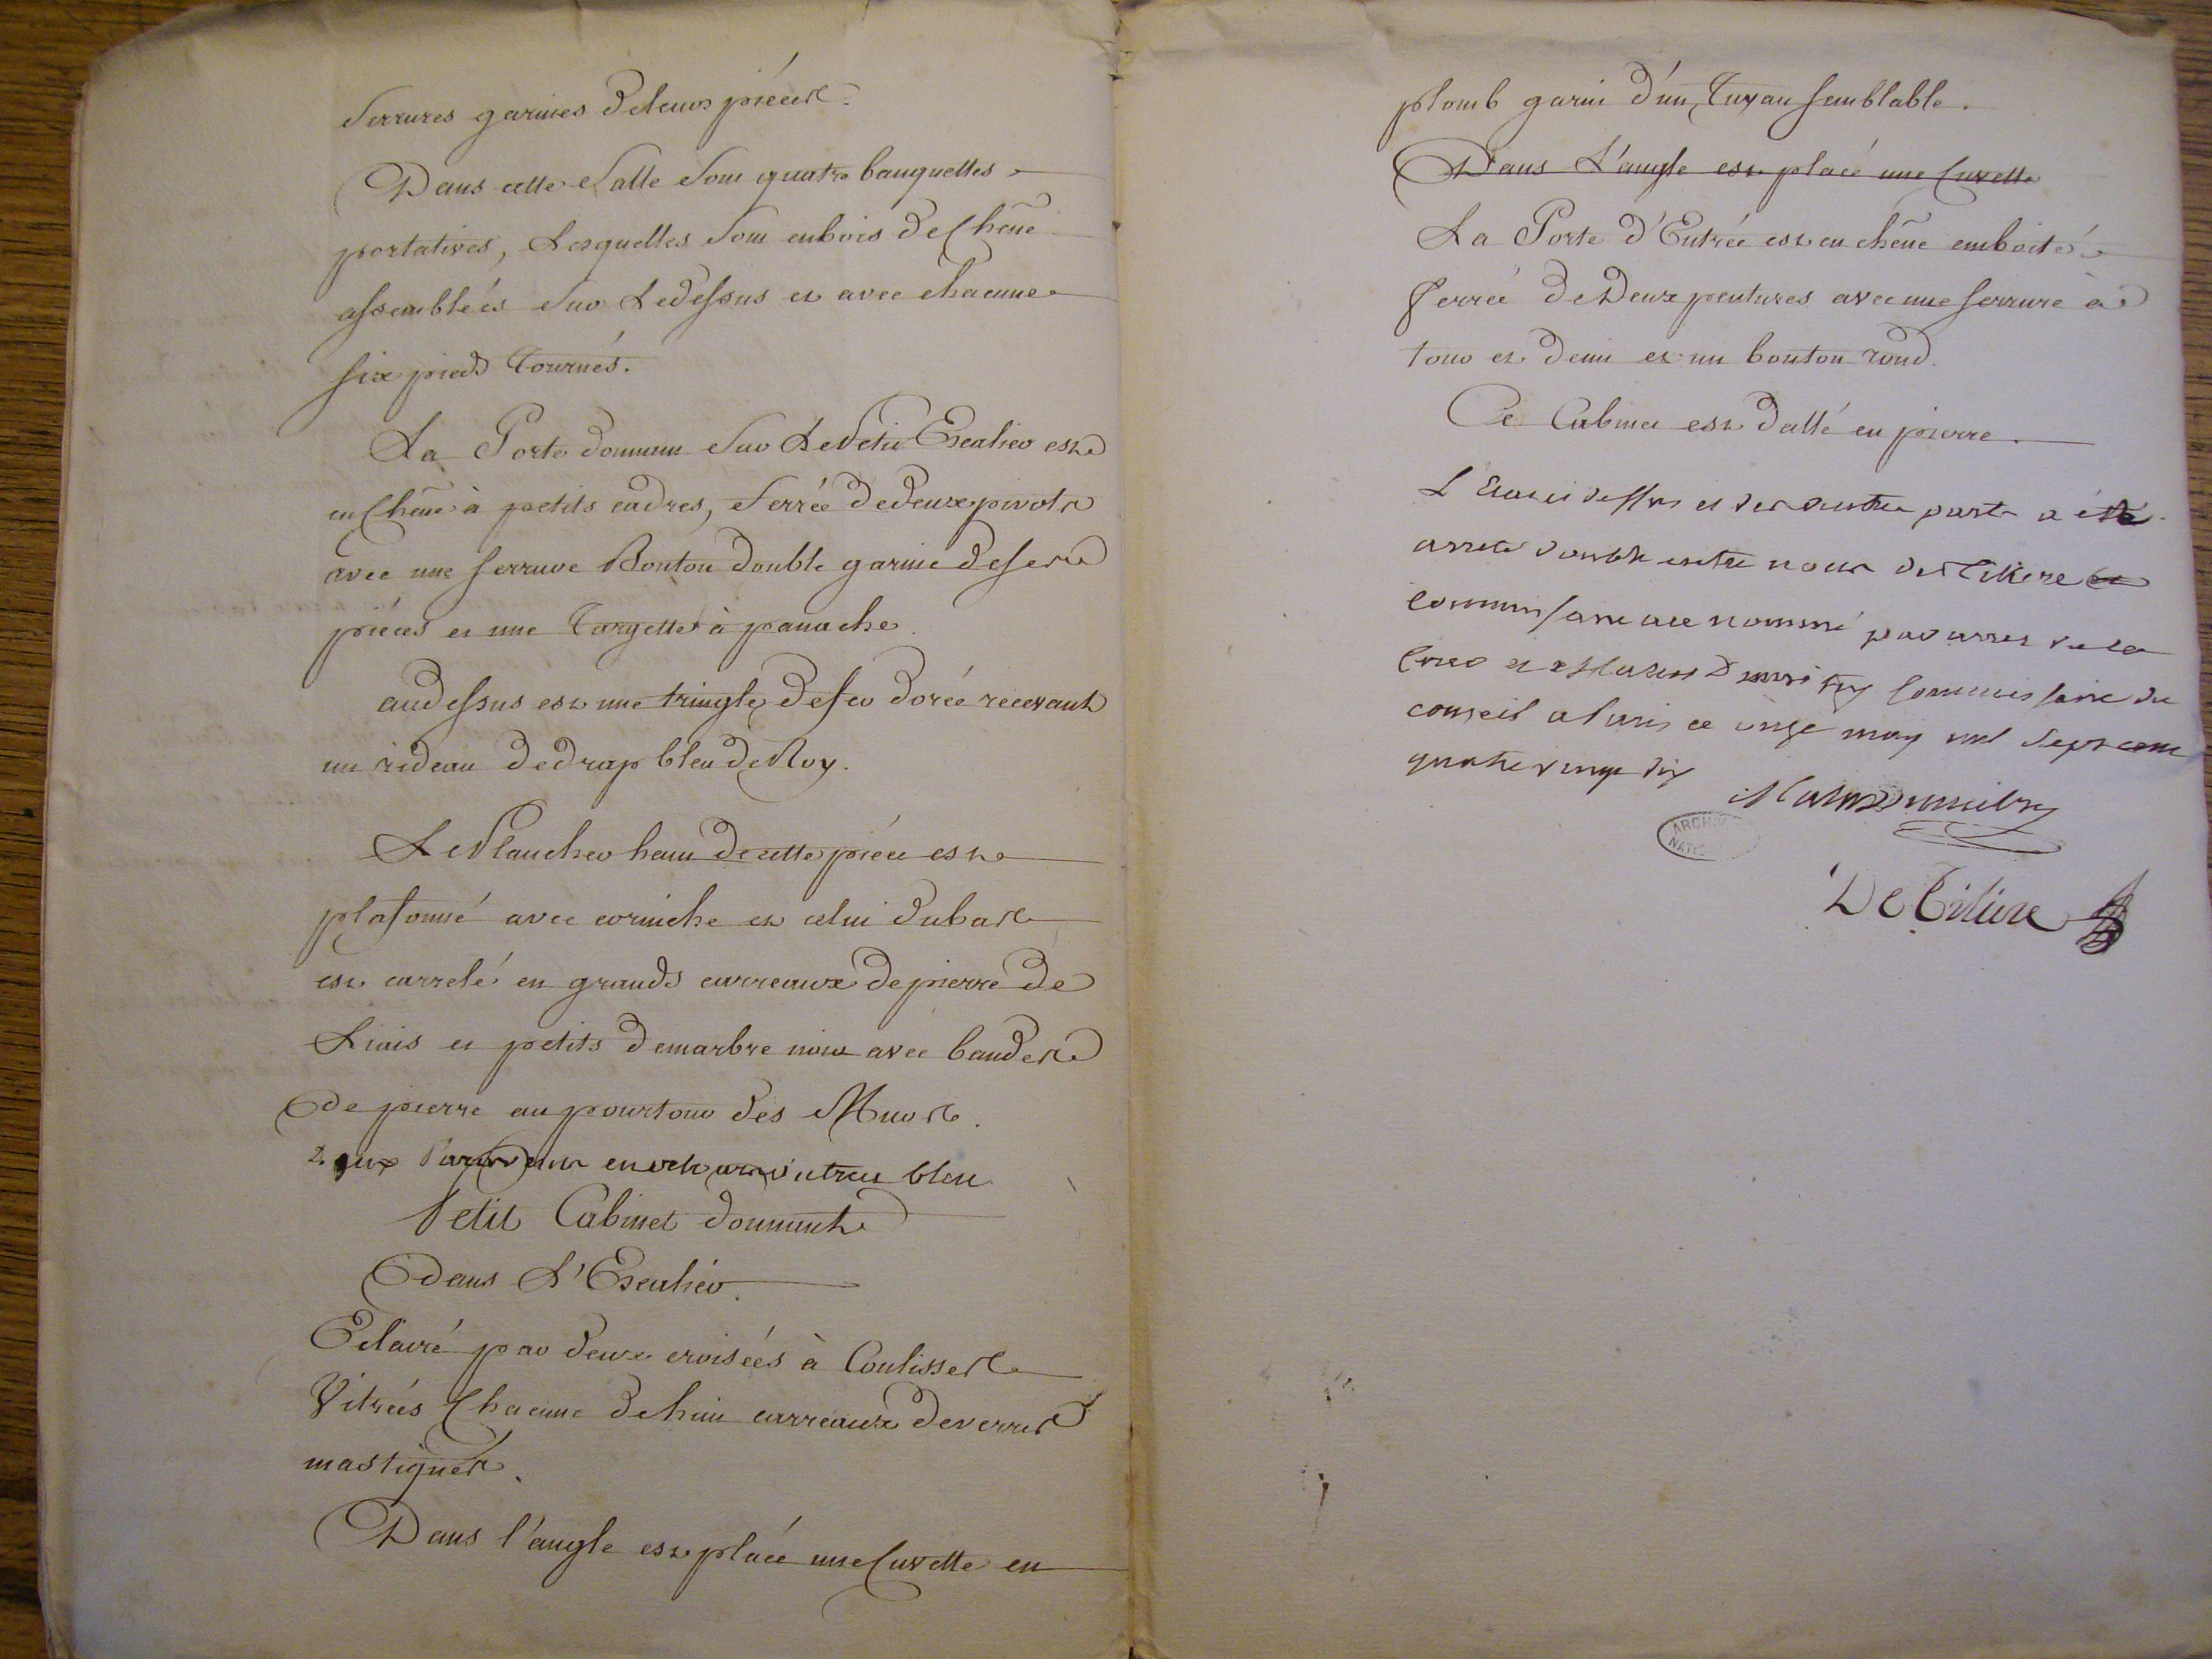 Serrures garnies de leurs piéces.
Dans cette Salle Sont quatre banquettes
portatives, Lesquelles Sont en bois de Chêne
assemblées Sur Le dessus et avec chacune
six pieds Tournés.
La Porte donnant Sur Le Petit Escalier est
en Chêne à petits cadres, Ferrée de deux pivots
avec une serrure Bouton double garnie de ses
piéces et une Targette à panache.
au dessus est une tringle de fer dorée recevant
un rideau de drap bleu de Roy.
Le Plancher haut de cette piéce est
plafonné avec corniche et celui du bas
est carrelé en grands carreaux de pierre de
Liais et petits de marbre noir avec bandes
de pierre au pourtour des Murs.
deux en velours bleu
Petit Cabinet donnant
dans L'Escalier.
Eclairé par deux croisées à Coulisses
Vitrées Chacune de huit carreaux de verres
mastiqués.
Dans l'angle est placé une Cuvette en
plomb garni d'un Tuyau semblable.
Dans L'angle est placé une Cuvette
La Porte d'Entrée est en chêne emboité
ferrée de Deux pentures avec une serrure à
tour et demi et un bouton rond.
Ce Cabinet est dallé en pierre.
L'Etat ci dessus et des autre parts a été
arreté double entre nous De Tiliere
commissaire nommé par arret de la
Cour et commissaire du
conseil a Paris ce onze may mil Sept cent
quatre vingt dix
De Tiliere
ARCHIVES
NATIO